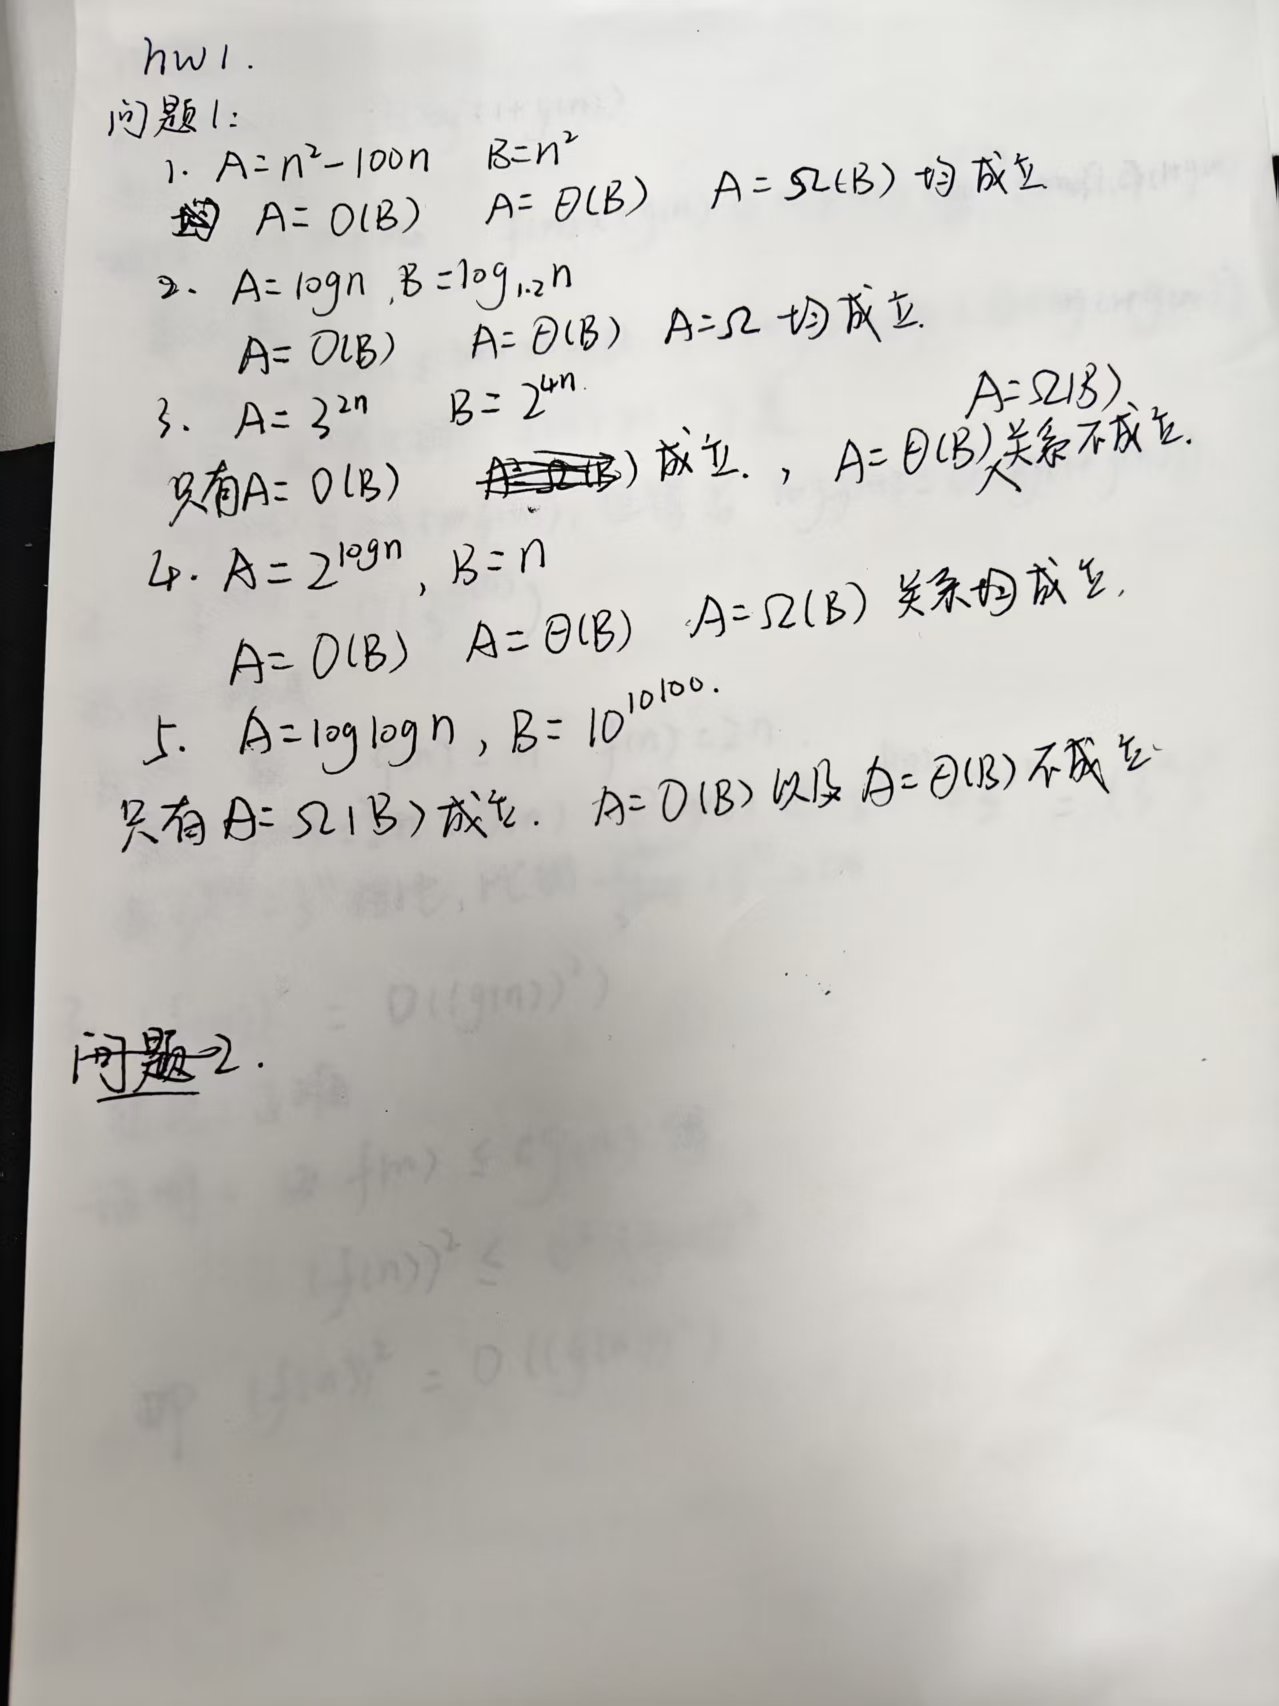 hw1.
问题1:
1. A=n²-100n B=n²
A=O(B) A=Θ(B) A=Ω(B) 均成立
2. A=logn, B=log₁.₂n
A=O(B) A=Θ(B) A=Ω 均成立.
3. A=3²ⁿ B=2⁴ⁿ.
A=Ω(B)、
只有A=O(B) 成立., A=Θ(B)关系不成立.
4. A=2^logn, B=n
A=O(B) A=Θ(B) A=Ω(B) 关系均成立.
5. A=loglogn, B=10^10100.
只有A=Ω(B)成立. A=O(B)以及A=Θ(B)不成立.
问题2.